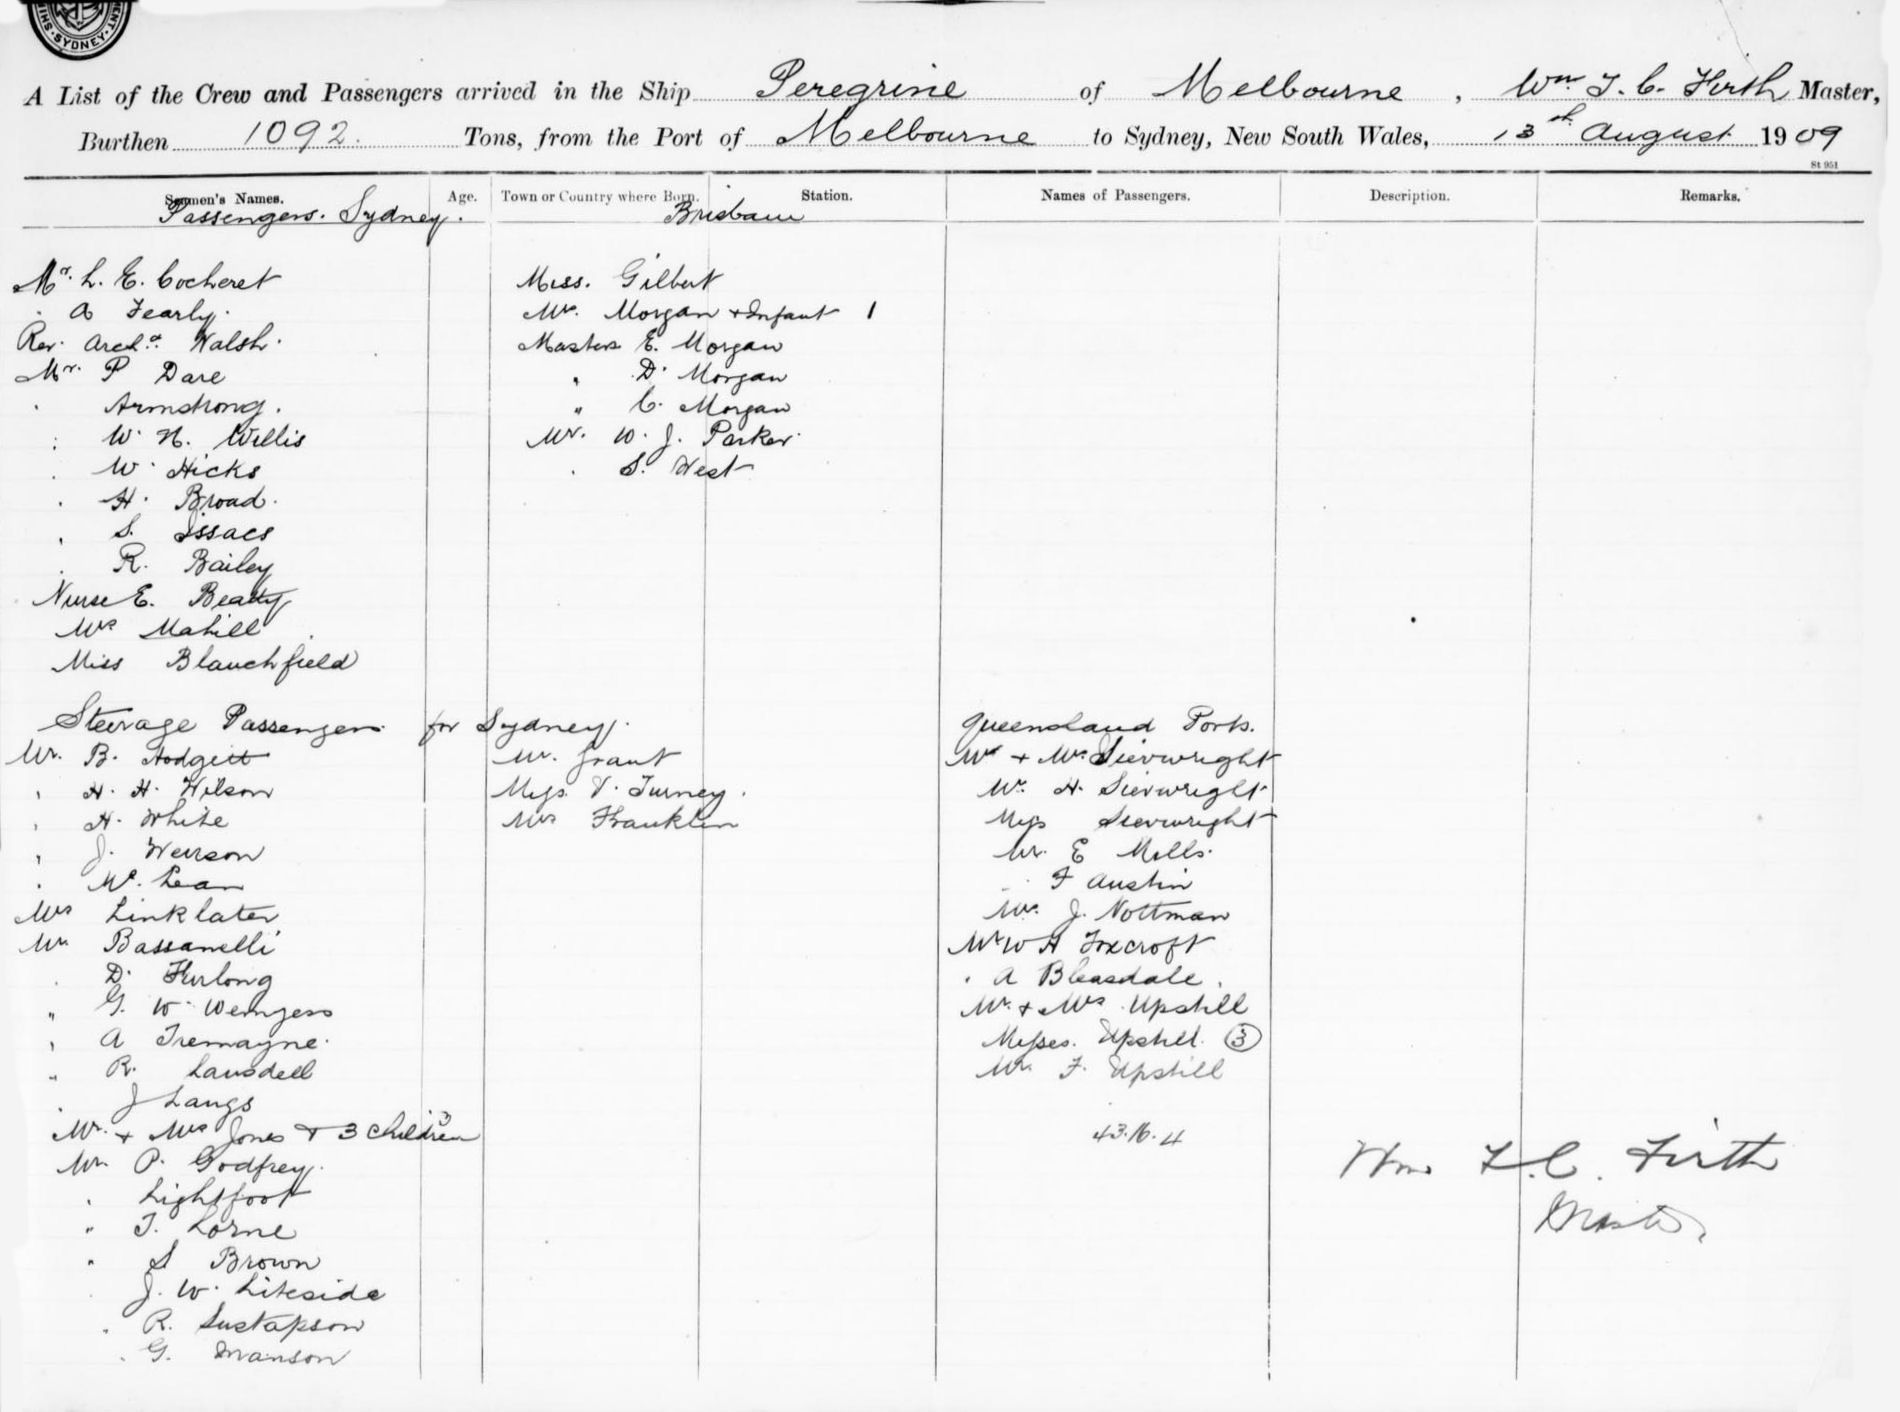 SYDNEY
A List of the Crew and Passengers arrived in the Ship Peregrine of Melbourne, Wm F. C. Firth Master,
Burthen 1092. Tons, from the Port of Melbourne to Sydney, New South Wales, 13th August 1909
St 951
Seamen's Names. Age. Town or Country where Born. Station. Names of Passengers. Description. Remarks.
Passengers. Sydney. Brisbane
Mr. L. E. Cocheret
. A Fearly.
Rev. Archd. Walsh.
Mr. P Dare
. Armstrong.
. W. N. Willis
. W. Hicks
. H. Broad.
. S. Issacs
. R. Bailey
Nurse E. Beatty
Mrs Mahill
Miss Blanchfield
Miss. Gilbert
Mrs. Morgan + Infant 1
Masters E. Morgan
" D. Morgan
" C. Morgan
Mr. W. J. Parker.
. S. West
Steerage Passengers for Sydney.
Mr. B. Hodgett
" H. H. Wilson
" H. White
" J. Weirson
. Mc. Lean
Mrs Linklater
Mr. Bassanelli
. D. Furlong
" G. W. Wemyess
" A Tremayne.
" R. Lansdell
. J Langs
Mr. + Mrs Jones + 3 children
Mr. P. Godfrey.
. Lightfoot
" T. Lorne
" S Brown
J. W. Liteside
. R. Gustafson
. G. Manson
Mr. Grant
Miss V. Turney.
Mrs Franklin
Queensland Ports.
Mr + Mrs Sievwright
Mr. H. Sievwright
Miss Sievwright
Mr. E Mills.
F Austin
Mrs. J. Nottman
Mr W H Foxcroft
. A Bleasdale.
Mr. + Mrs Upstill
Misses. Upstill. 3
Mr. F. Upstill
43.16.4
Wm F. C. Firth
Master